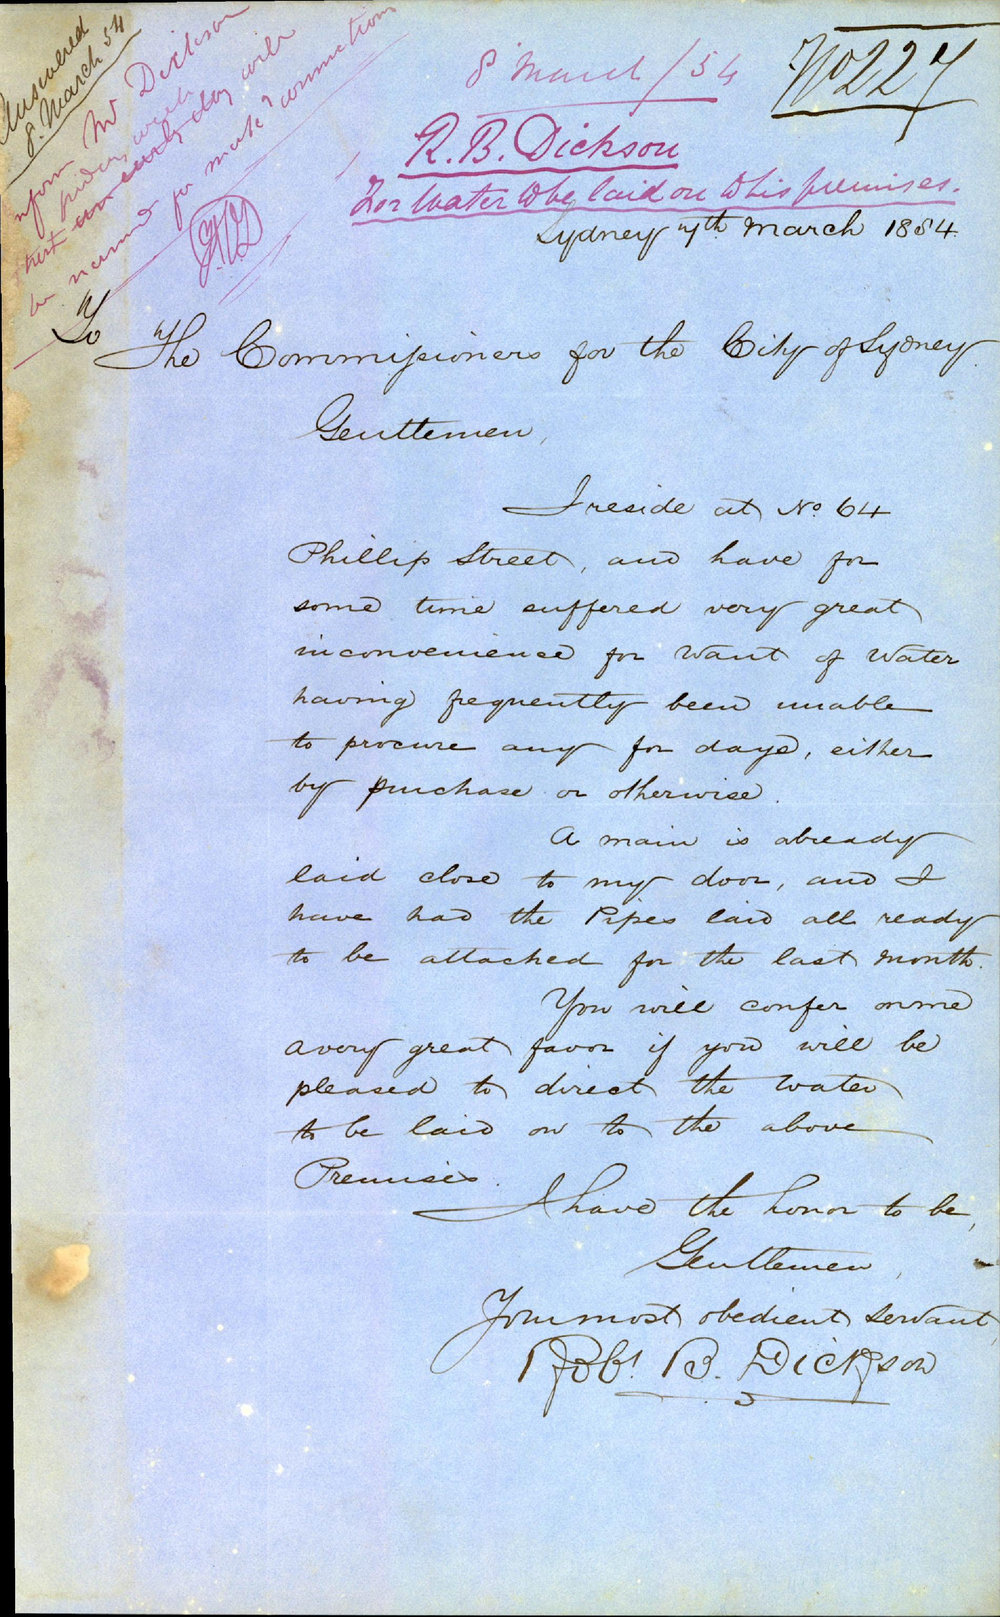 Answered
8. March 54
Inform Mr Dickson
that an early day will
be named for make connection
8 March /54
No 227
R. B. Dickson
For Water to be laid on to his premises.
Sydney 7th March 1854.
To
The Commissioners for the City of Sydney.
Gentlemen,
I reside at No. 64
Phillip Street, and have for
some time suffered very great
inconvenience for want of Water
having frequently been unable
to procure any for days, either
by purchase or otherwise.
A main is already
laid close to my door, and I
have had the Pipes laid all ready
to be attached for the last month.
You will confer on me
a very great favor if you will be
pleased to direct the Water
to be laid on to the above
Premises.
I have the honor to be,
Gentlemen,
Your most obedient servant,
Robt. B. Dickson